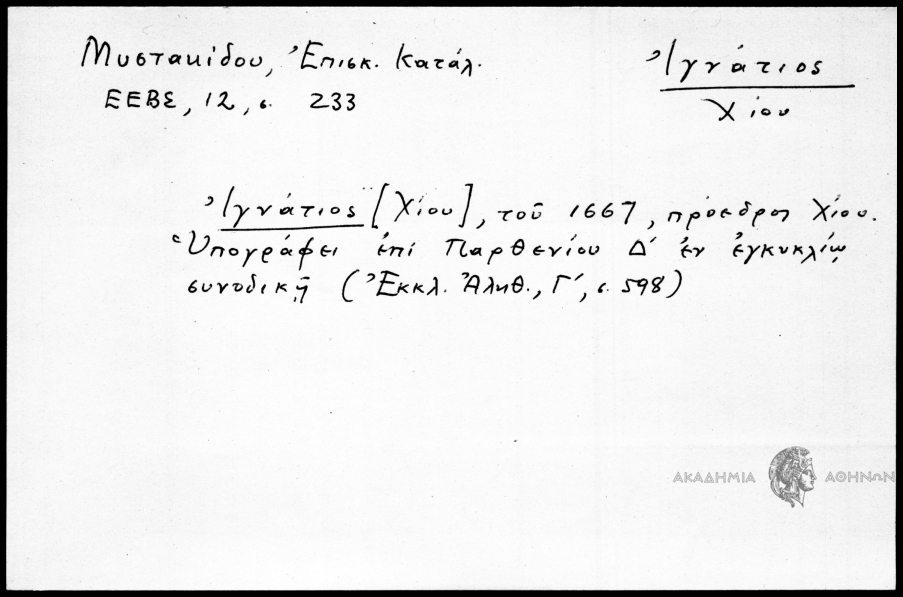 Μυστακίδου, Ἐπισκ. Κατάλ.
ΕΕΒΣ, 12, σ. 233
Ἰγνάτιος
Χίου
Ἰγνάτιος [Χίου], τοῦ 1667, πρόεδρος Χίου.
Ὑπογράφει ἐπί Παρθενίου Δ΄ ἐν ἐγκυκλίῳ
συνοδικῇ (Ἐκκλ. Ἀληθ., Γ΄, σ. 598)
ΑΚΑΔΗΜΙΑ ΑΘΗΝΩΝ